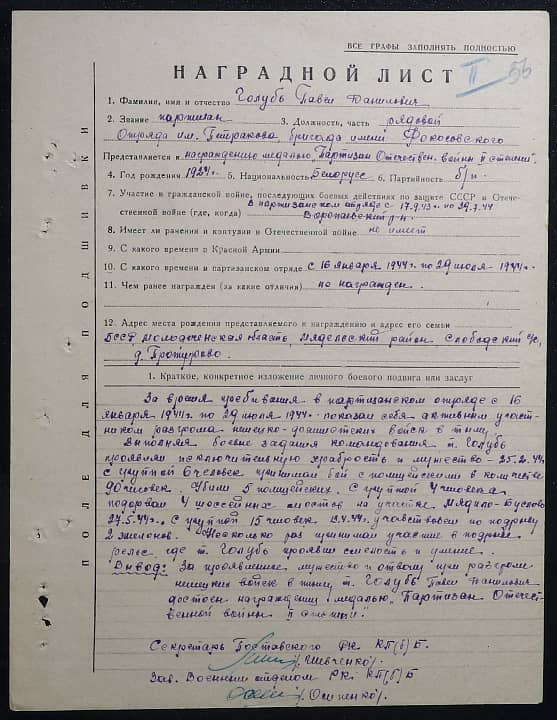 ВСЕ ГРАФЫ ЗАПОЛНЯТЬ ПОЛНОСТЬЮ
НАГРАДНОЙ ЛИСТ II 53
1. Фамилия, имя и отчество Голубь Павел Данилович
2. Звание партизан 3. Должность, часть рядовой
Отряда им. бригада имени Рокосовского
Представляется к награждению медалью "Партизан Отечествен. войны II степени".
4. Год рождения 1924 г. 5. Национальность Белорусс 6. Партийность б/п.
7. Участие в гражданской войне, последующих боевых действиях по защите СССР и Отече-
ственной войне (где, когда) В партизанском отряде с по 29.7.44
Воропаевский р-н.
8. Имеет ли ранения и контузии в Отечественной войне не имеет
9. С какого времени в Красной Армии
10. С какого времени в партизанском отряде с 16 января 1944 г. по 29 июля 1944 г.
11. Чем ранее награжден (за какие отличия) не награжден.
12. Адрес места рождения представляемого к награждению и адрес его семьи
БССР Молодеченская область, Мядельский район Слободский с/с,
д.
1. Краткое, конкретное изложение личного боевого подвига или заслуг
За время пребывания в партизанском отряде с 16
января 1944 г. по 29 июля 1944 г. показал себя активным участ-
ником разгрома немецко-фашистских войск в тылу.
Выполняя боевые задания командования т. Голубь
проявлял исключительную храбрость и мужество - 25.2.44.
с группой 6 человек принимал бой с полицейскими в количестве
90 человек. Убили 5 полицейских. С группой 4 человека
подорвал 4 шоссейных мостов на участке Мядило-
27.5.44 г. С группой 15 человек участвовал по подрыву
2 эшелонов. Несколько раз принимал участие в подрыве
рельс, где т. Голубь проявил смелость и умение.
Вывод: За проявленное мужество и отвагу при разгроме
немецких войск в тылу т. Голубь Павел Данилович
достоин награждения медалью "Партизан Отечест-
венной войны II степени"
Секретарь Поставского РК КП(б)Б.
/Шевченко/.
Зав. Военным отделом РК. КП(б)Б
/Осипенко/.
ПОЛЕ ДЛЯ ПОДШИВКИ